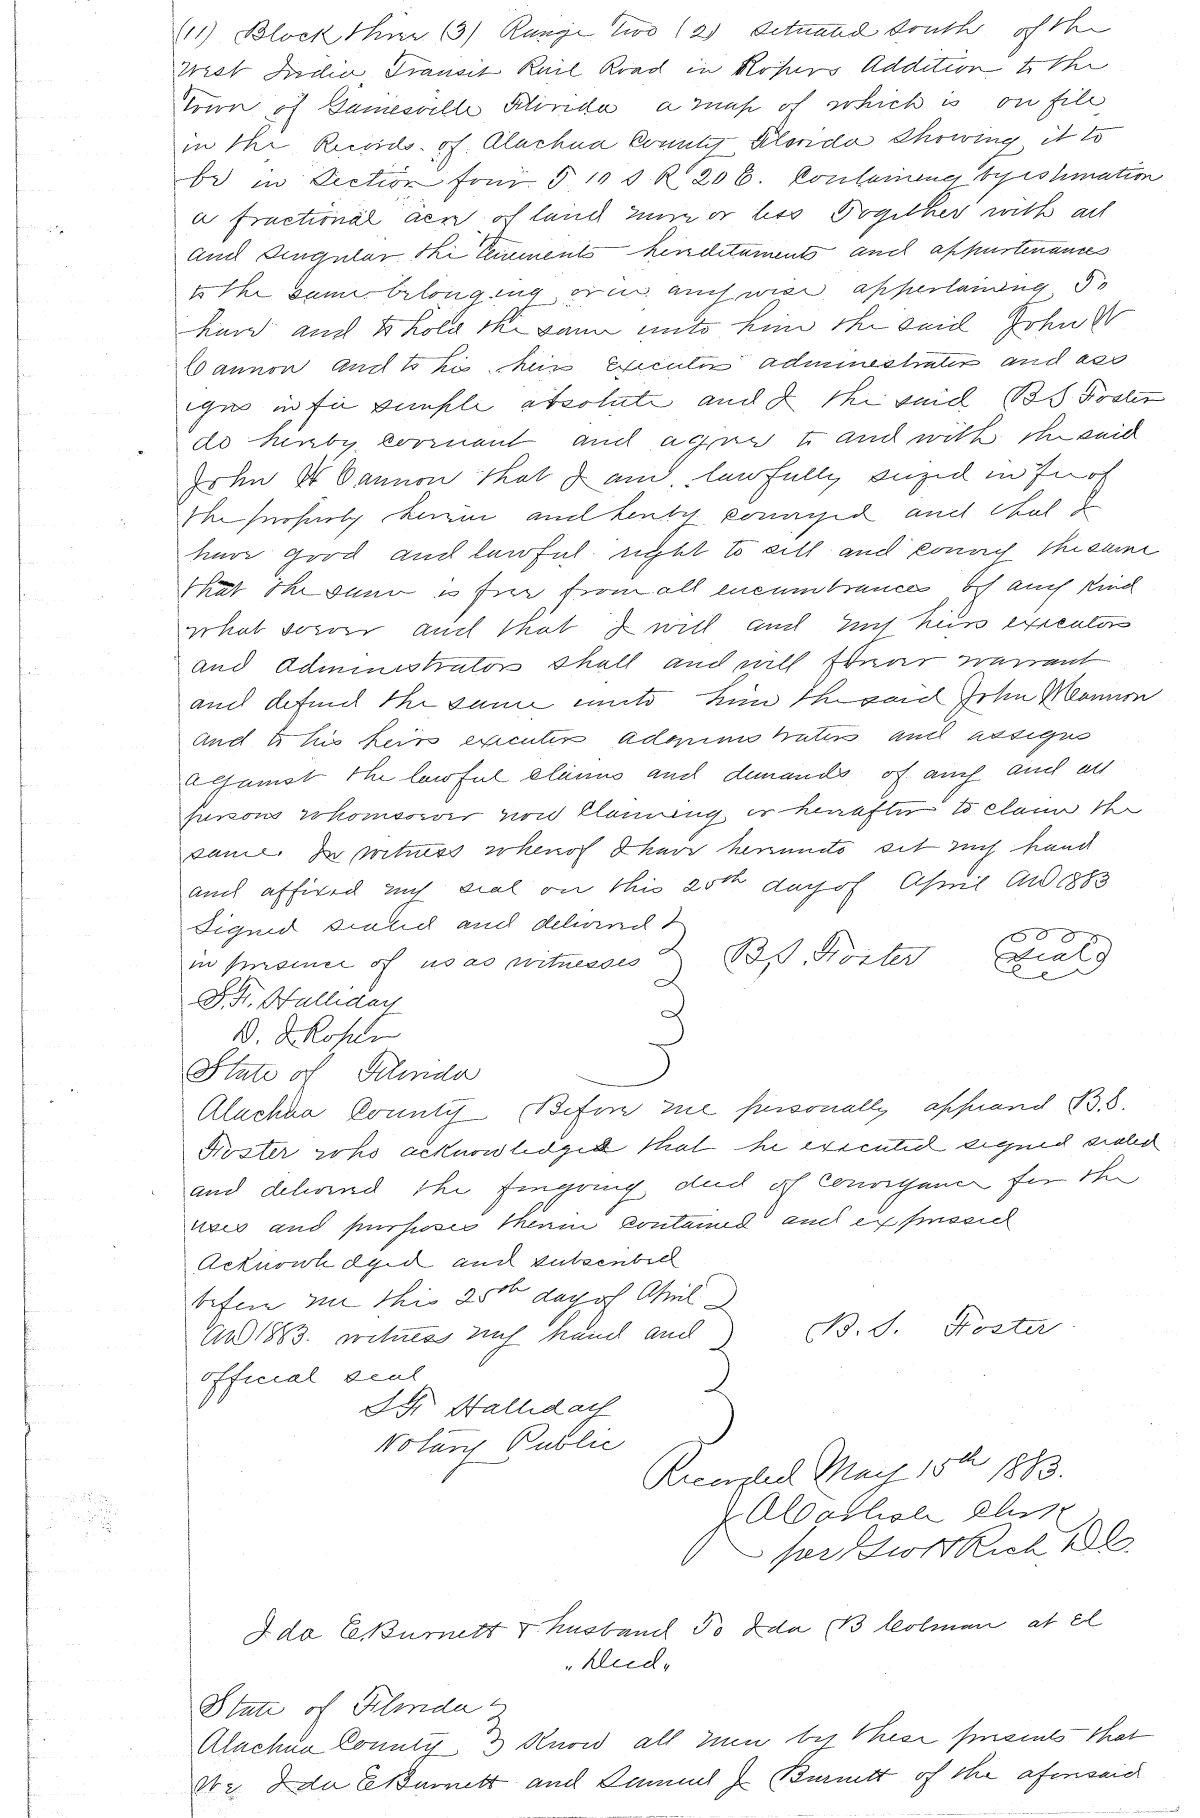 (11) Block three (3) Range Two (2) situated South of the
West India Transit Rail Road in Ropers Addition to the
Town of Gainesville Florida a map of which is on file
in the Records of Alachua County Florida Showing it to
be in Section four T 10 S R 20 E. Containing by estimation
a fractional acre of land more or less Together with all
and Singular the tenements hereditaments and appurtenances
to the same belonging or in any wise appertaining To
have and to hold the same unto him the said John W
Cannon and to his heirs executors administrators and ass
igns in fee simple absolute and I the said B S Foster
do hereby covenant and agree to and with the said
John W Cannon that I am lawfully seized in fee of
the property herein and hereby conveyed and that I
have good and lawful right to sell and convey the same
that the same is free from all encumbrances of any Kind
what soever and that I will and my heirs executors
and Administrators shall and will forever warrant
and defend the same unto him the said John W Cannon
and to his heirs executors administrators and assigns
against the lawful claims and demands of any and all
persons whomsoever now Claiming or hereafter to claim the
same. In witness whereof I have hereunto set my hand
and affixed my seal on this 25th day of April AD 1883
Signed sealed and delivered
in presence of us as witnesses B.S. Foster Seal
S.F. Halliday
D. L. Roper
State of Florida
Alachua County Before me personally appeared B.S.
Foster who acknowledged that he executed signed sealed
and delivered the foregoing deed of Conveyance for the
uses and purposes therein contained and expressed
Acknowledged and subscribed
before me this 25th day of April
AD 1883. witness my hand and B. S. Foster
official seal
S F Halliday
Notary Public
Recorded May 15th 1883.
J A Carlisle Clerk
per Rich D.C.
Ida E Burnett & husband To Ida B Colman at el
"Deed"
State of Florida
Alachua County Know all men by these presents that
We Ida E Burnett and Samuel J Burnett of the aforesaid